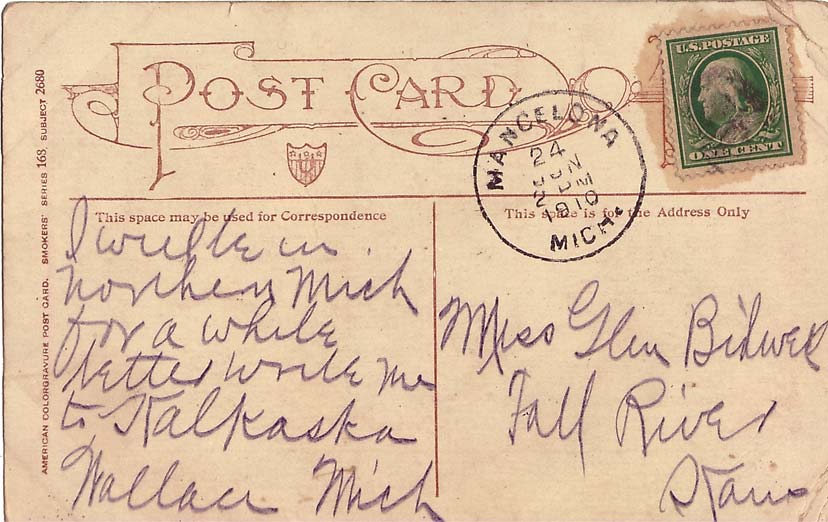 AMERICAN COLORGRAVURE POST CARD. SMOKERS' SERIES 168, SUBJECT 2680
POST CARD
U.S. POSTAGE
ONE CENT
MANCELONA
24
JUN
2 PM
1910
MICH.
This space may be used for Correspondence
I will be in
Northern Mich
for a while
better write me
to Kalkaska
Wallace Mich
This space is for the Address Only
Miss Glen Bidwell
Fall River
Kans